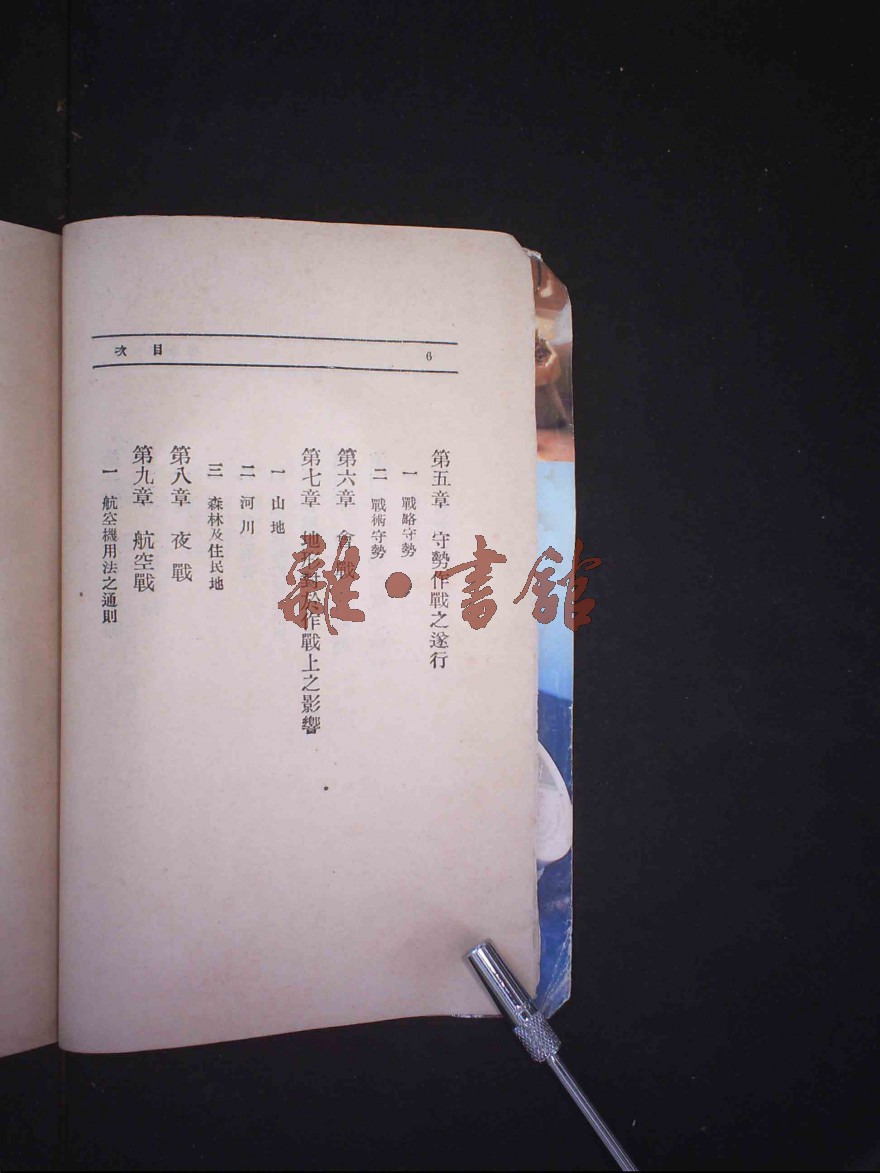 目次
6
第五章　守勢作戰之遂行
一　戰略守勢
二　戰術守勢
第六章　會戰
第七章　地形對於作戰上之影響
一　山地
二　河川
三　森林及住民地
第八章　夜戰
第九章　航空戰
一　航空機用法之通則
雜·書館